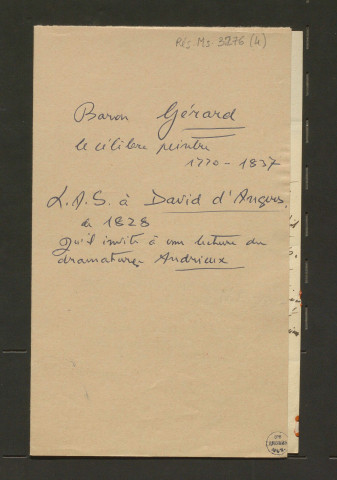 Rés. Ms. 3276 (4)
Baron Gérard
le célèbre peintre
1770 - 1837
L.A.S. à David d'Angers,
de 1828
qu'il invite à une lecture du
dramaturge Andrieux